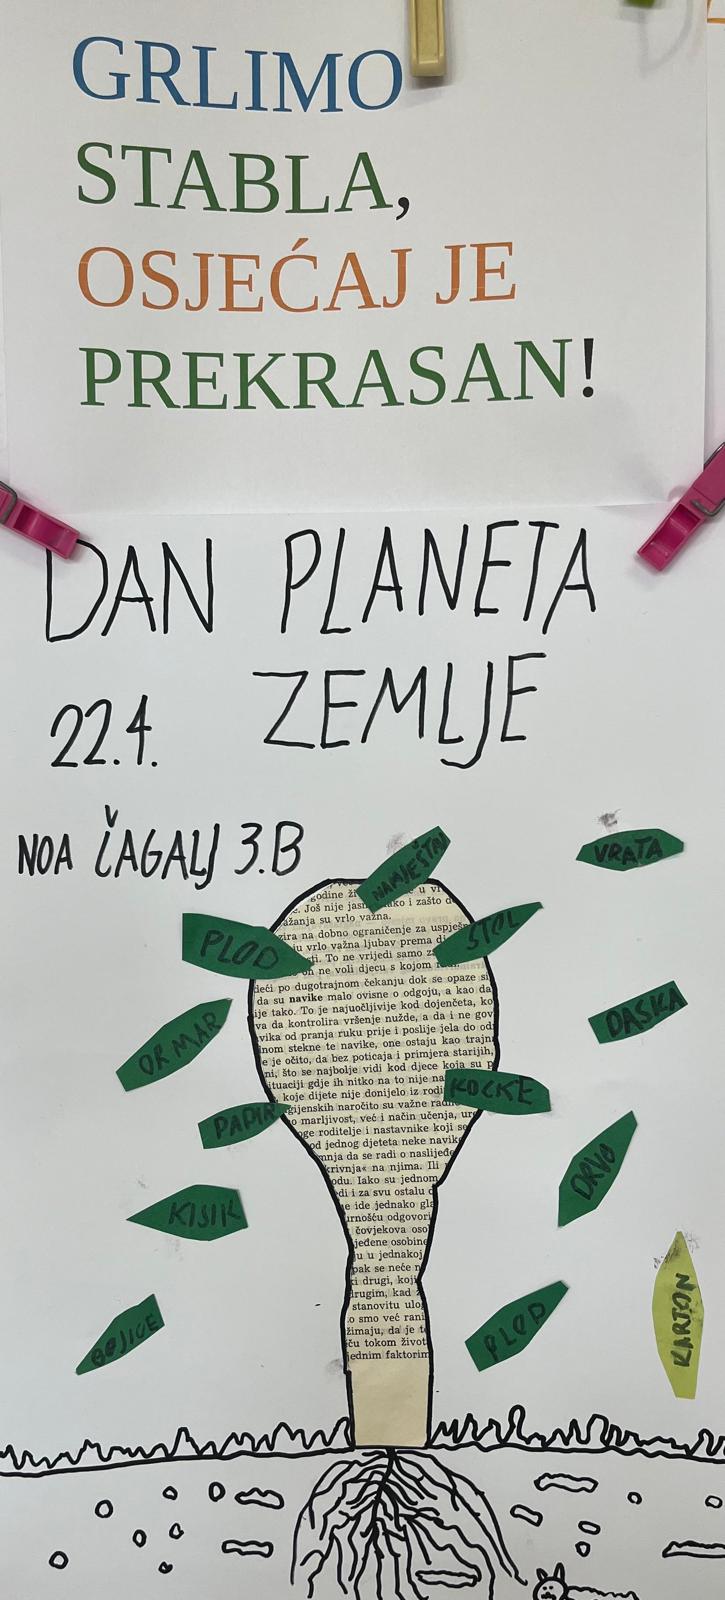 GRLIMO
STABLA,
OSJEĆAJ JE
PREKRASAN!
DAN PLANETA
ZEMLJE
22.4.
NOA ČAGALJ 3.B
NAMJEŠTAJ
VRATA
PLOD
STOL
ORMAR
DASKA
PAPIR
KOCKE
KISIK
DRVO
BOJICE
PLOD
KARTON
godine ži
e. Još nije jasn
ako i zašto d
ažanja su vrlo važna.
zira na dobno ograničenje za uspješn
ju vrlo važna ljubav prema di
sti. To ne vrijedi samo z
on ne voli djecu s kojom
deći po dugotrajnom čekanju dok se opaze si
da su navike malo ovisne o odgoju, a kao da
ije tako. To je najuočljivije kod dojenčeta, ko
va da kontrolira vršenje nužde, a da i ne gov
vika od pranja ruku prije i poslije jela do od
inom stekne te navike, one ostaju kao trajn
e je očito, da bez poticaja i primjera starijih,
ni, što se najbolje vidi kod djece koja su p
ituaciji gdje ih nitko na to nije na
koje dijete nije donijelo iz rodi
gijenskih naročito su važne radn
o marljivost, već i način učenja, ure
oge roditelje i nastavnike koji se
od jednog djeteta neke navik
mnja da se radi o naslijeđe
krivnja« na njima. Ili
odu. Iako su jednom
edi i za svu ostalu d
ne ide jednako gla
urnošću odgovori
čovjekova oso
jeđene osobine
ju u jednakoj
pak se neće n
ki drugi, koji
drugim, kad
stanovitu ulo
o smo već rani
zimaju, da je te
ču tokom život
jednim faktorim